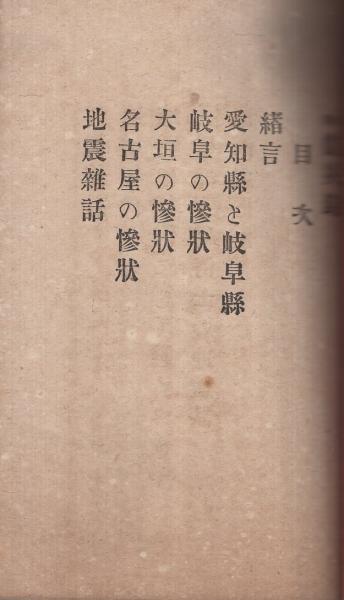 目次
緒言
愛知縣と岐阜縣
岐阜の慘狀
大垣の慘狀
名古屋の慘狀
地震雜話